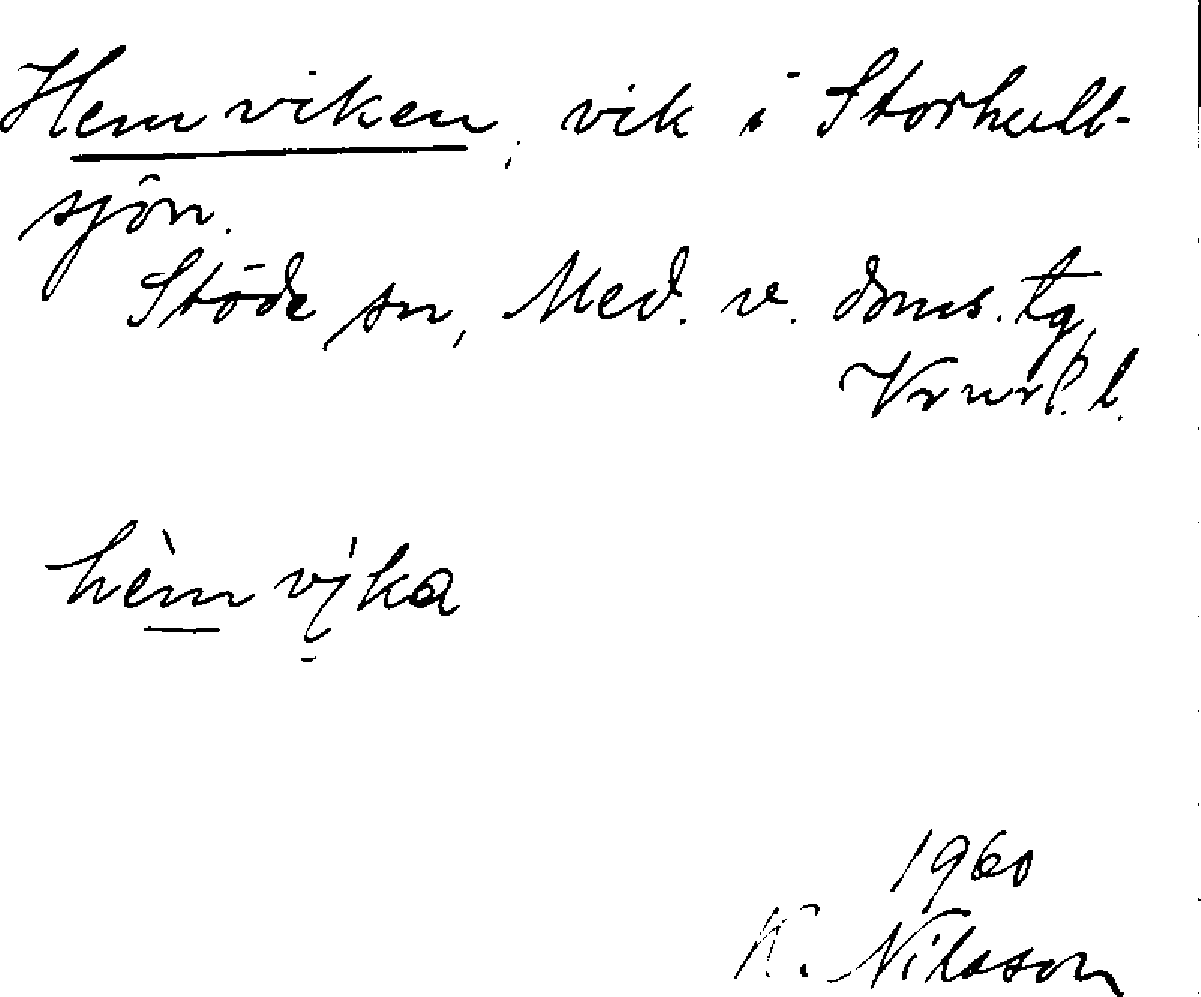 Hemviken, vik i Storhull-
sjön.
Stöde sn, Med. v. doms. tg,
Vnrl. l.
hèmvi̱ka
1960
K. Nilsson